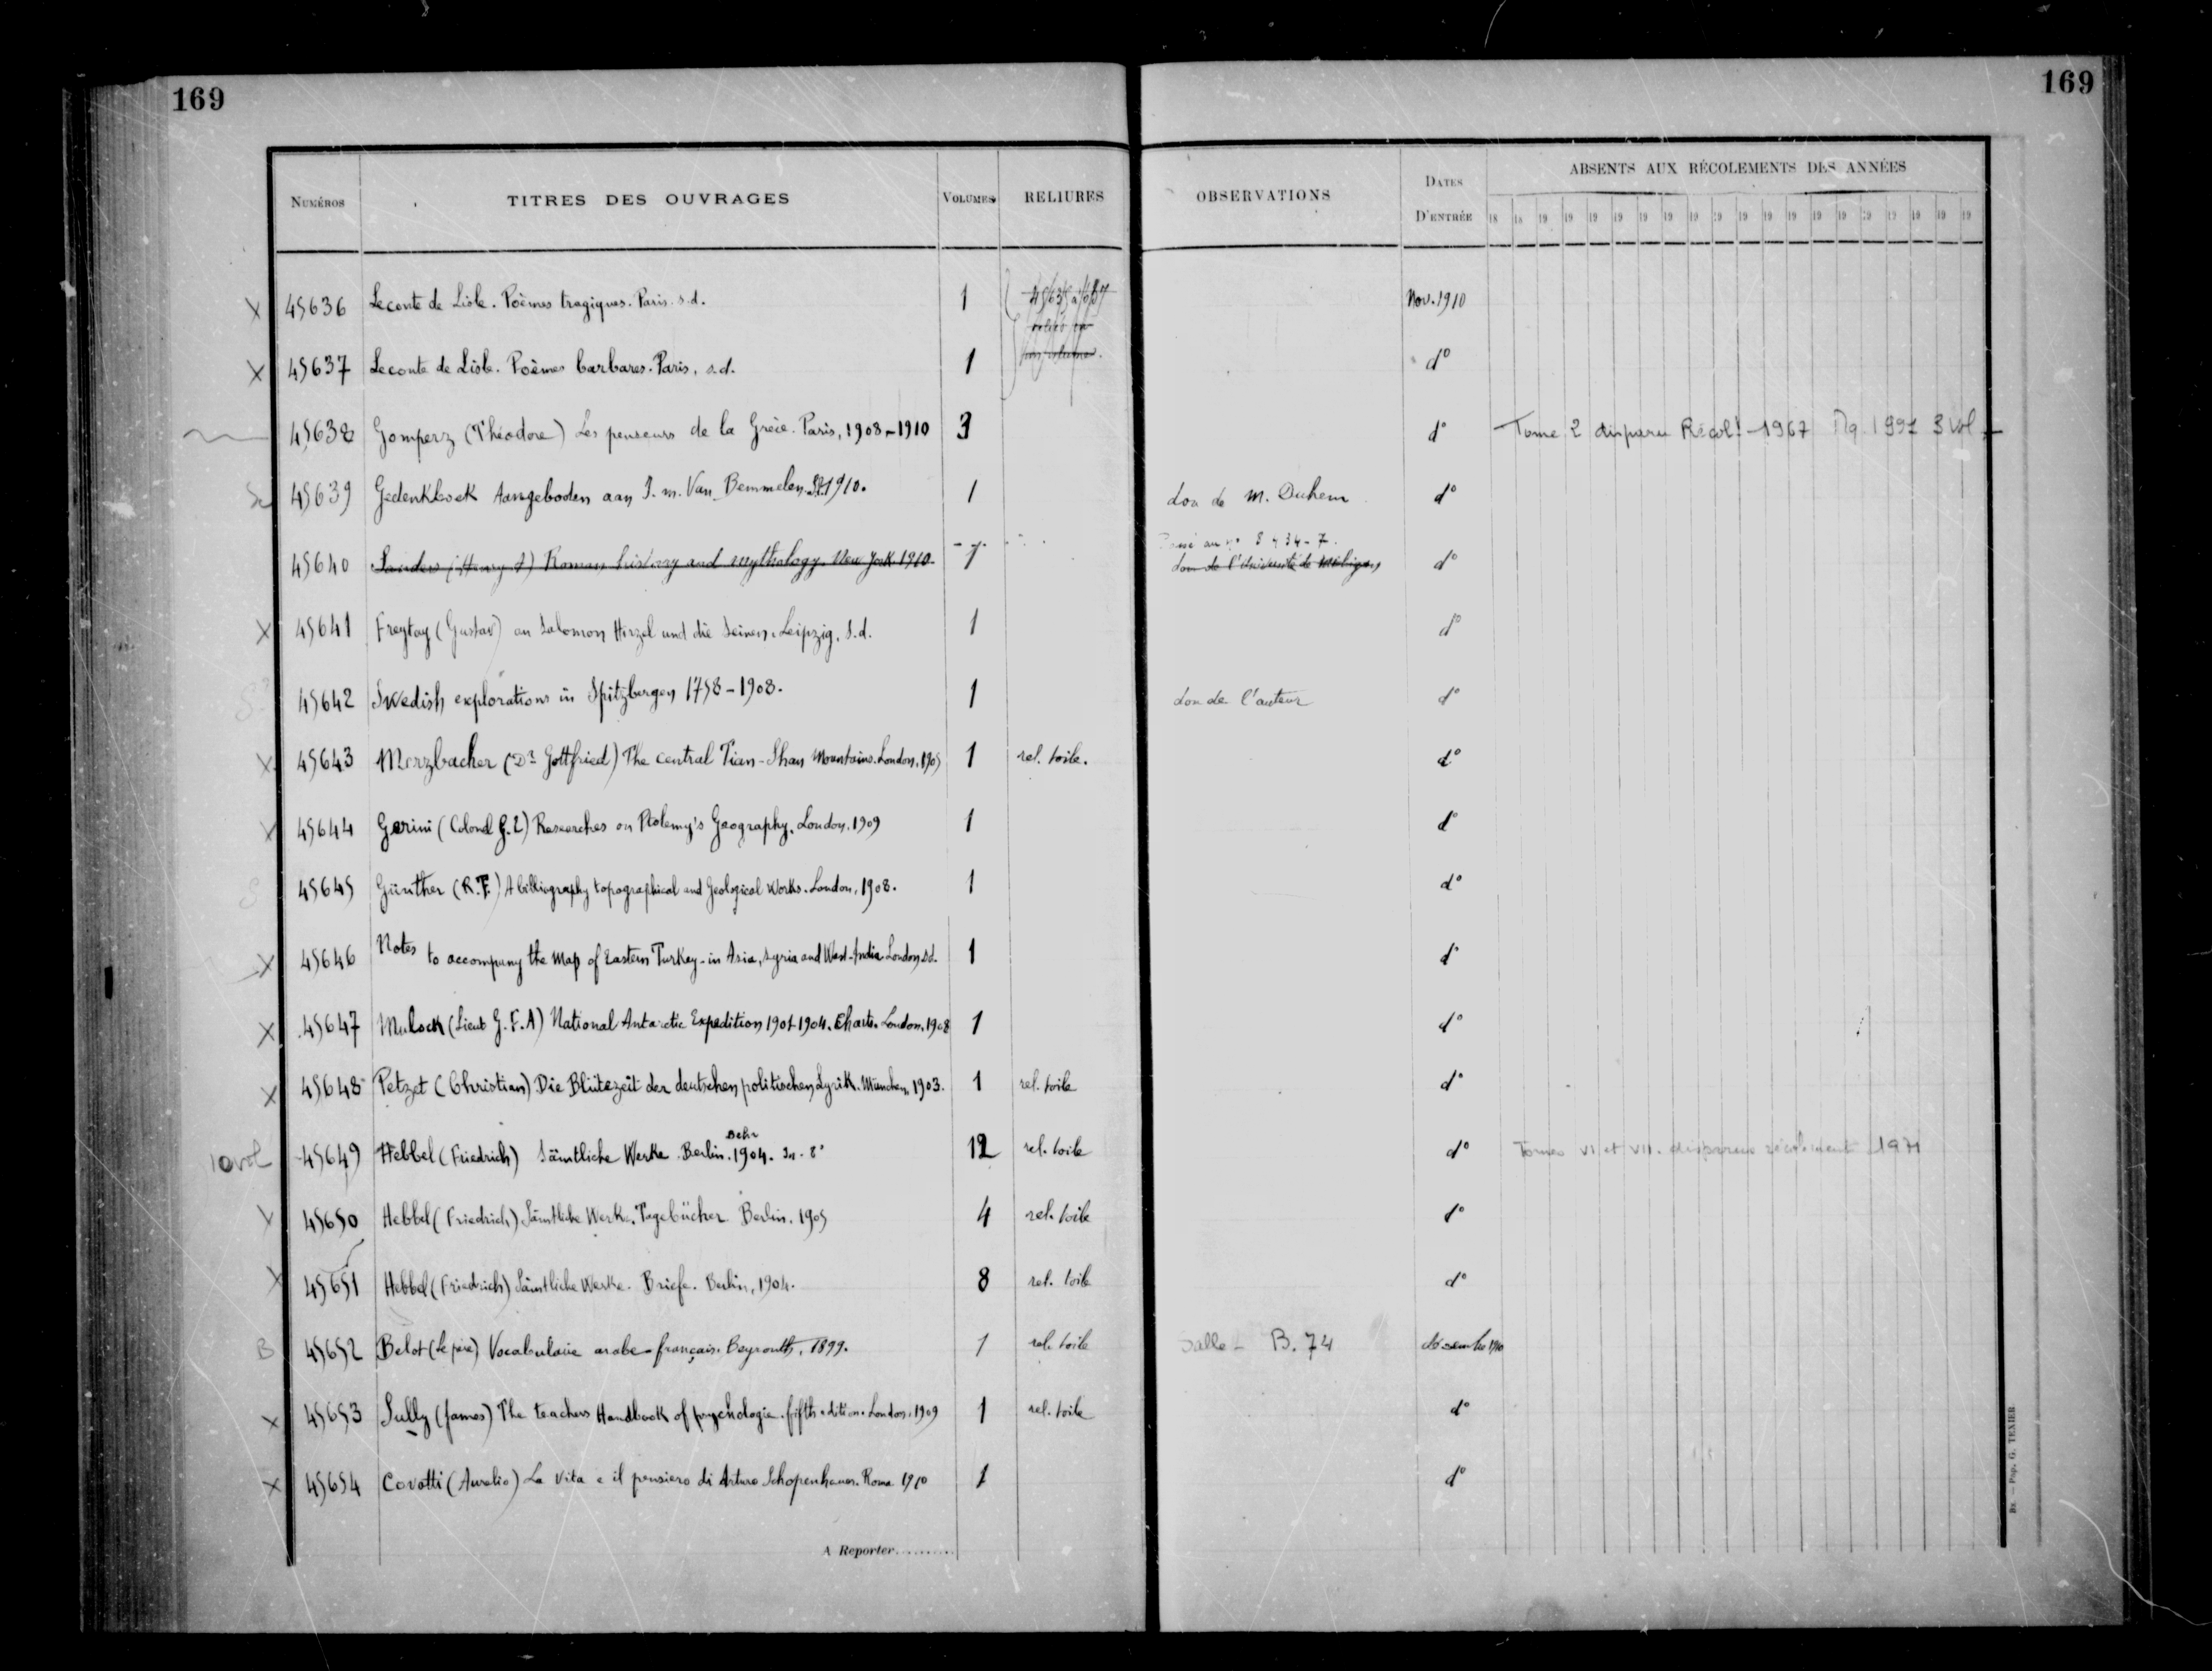 169
169
NUMÉROS TITRES DES OUVRAGES VOLUMES RELIURES OBSERVATIONS DATES D'ENTRÉE ABSENTS AUX RÉCOLEMENTS DES ANNÉES
18 18 19 19 19 19 19 19 19 19 19 19 19 19 19 19 19 19 19 19
X 45636 Leconte de Lisle. Poèmes tragiques. Paris. s.d. 1 Nov. 1910
X 45637 Leconte de Lisle. Poèmes barbares. Paris, s.d. 1 d°
45638 Gomperz (Théodore) Les penseurs de la Grèce. Paris, 1908-1910 3 d° Tome 2 disparu Récolt 1967 1991 3 vol
45639 Gedenkboek Aangeboden aan J. m. Van Bemmelen. 1910. 1 don de M. Duhem d°
45640 Sanders (Henry A) Roman history and mythology. New York 1910. 1 don de l'Université de Michigan d°
X 45641 Freytag (Gustav) an Salomon Hirzel und die Seinen. Leipzig, s.d. 1 d°
45642 Swedish explorations in Spitzbergen 1758-1908. 1 don de l'auteur d°
X 45643 Merzbacher (Dr Gottfried) The central Tian-Shan Mountains. London, 1905 1 rel. toile. d°
X 45644 Gerini (Colonel G. E) Researches on Ptolemy's Geography. London, 1909 1 d°
S 45645 Günther (R.T.) A bibliography topographical and Geological Works. London, 1908. 1 d°
X 45646 Notes to accompany the Map of Eastern Turkey-in Asia, Syria and West-India London, s.d. 1 d°
X 45647 Mulock (Lieut G. F. A) National Antarctic Expedition 1901-1904. Charts. London, 1908 1 d°
X 45648 Petzet (Christian) Die Blütezeit der deutschen politischen Lyrik. München, 1903. 1 rel. toile d°
10 vol 45649 Hebbel (Friedrich) Sämtliche Werke. Berlin. Behr 1904. In-8° 12 rel. toile d° Tomes VI et VII. disparus récolement 1971
X 45650 Hebbel (Friedrich) Sämtliche Werke. Tagebücher Berlin. 1905 4 rel. toile d°
X 45651 Hebbel (Friedrich) Sämtliche Werke. Briefe. Berlin, 1904. 8 rel. toile d°
B 45652 Belot (le père) Vocabulaire arabe-français. Beyrouth, 1899. 1 rel. toile Salle - B. 74 décembre 1910
X 45653 Sully (James) The teachers Handbook of psychologie. fifth edition. London, 1909 1 rel. toile d°
X 45654 Covotti (Aurelio) La Vita e il pensiero di Arturo Schopenhauer. Roma 1910 1 d°
A Reporter..........
Bx. — Pap. G. TEXIER